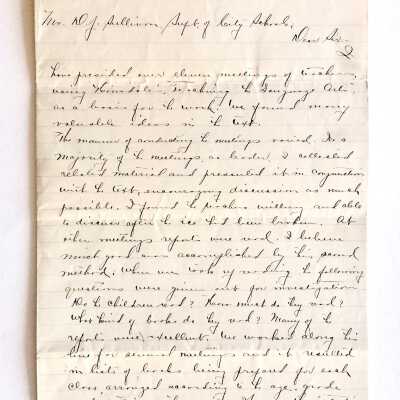 Mr. D. J. Sullivan, Supt. of City Schools,
Dear Sir:-
I
have presided over eleven meetings of teachers,
using Hinsdale's "Teaching the Language Arts"
as a basis for the work. We found many
valuable ideas in the text.
The manner of conducting the meetings varied. In a
majority of the meetings, as leader, I collected
related material and presented it in conjunction
with the text, encouraging discussion as much
possible. I found the teachers willing and able
to discuss after the ice had been broken. At
other meetings reports were read. I believe
much good was accomplished by this second
method. When we took up reading the following
questions were given out for investigation
Do the children read? How much do they read?
What kind of books do they read? Many of the
reports were excellent. We worked along this
line for several meetings and it resulted
in lists of books being prepared for each
class, arranged according to the age, grade